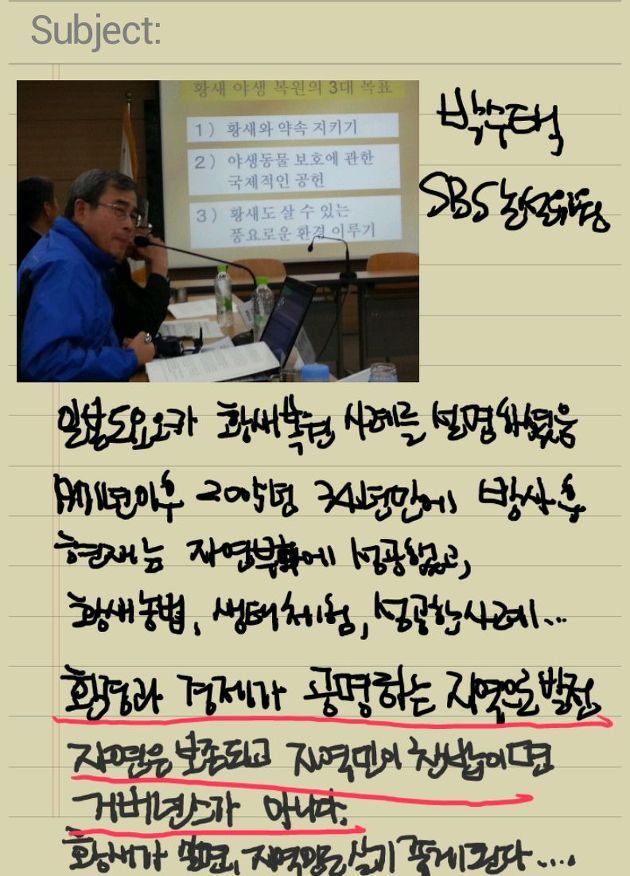 Subject:
황새 야생 복원의 3대 목표
1) 황새와 약속 지키기
2) 야생동물 보호에 관한
국제적인 공헌
3) 황새도 살 수 있는
풍요로운 환경 이루기
박수택
SBS 논설위원
일본 도요오카 황새복원 사례를 설명하셨음
이후 2005년 34년만에 방사 후
현재는 자연부화에 성공했고,
황새농법, 생태체험, 성공한 사례...
환경과 경제가 공명하는 지역으로 발전
자연은 보존되고 지역민이 찬밥이면
거버넌스가 아니다.
황새가 살면, 지역민은 살기 좋게 된다 ....